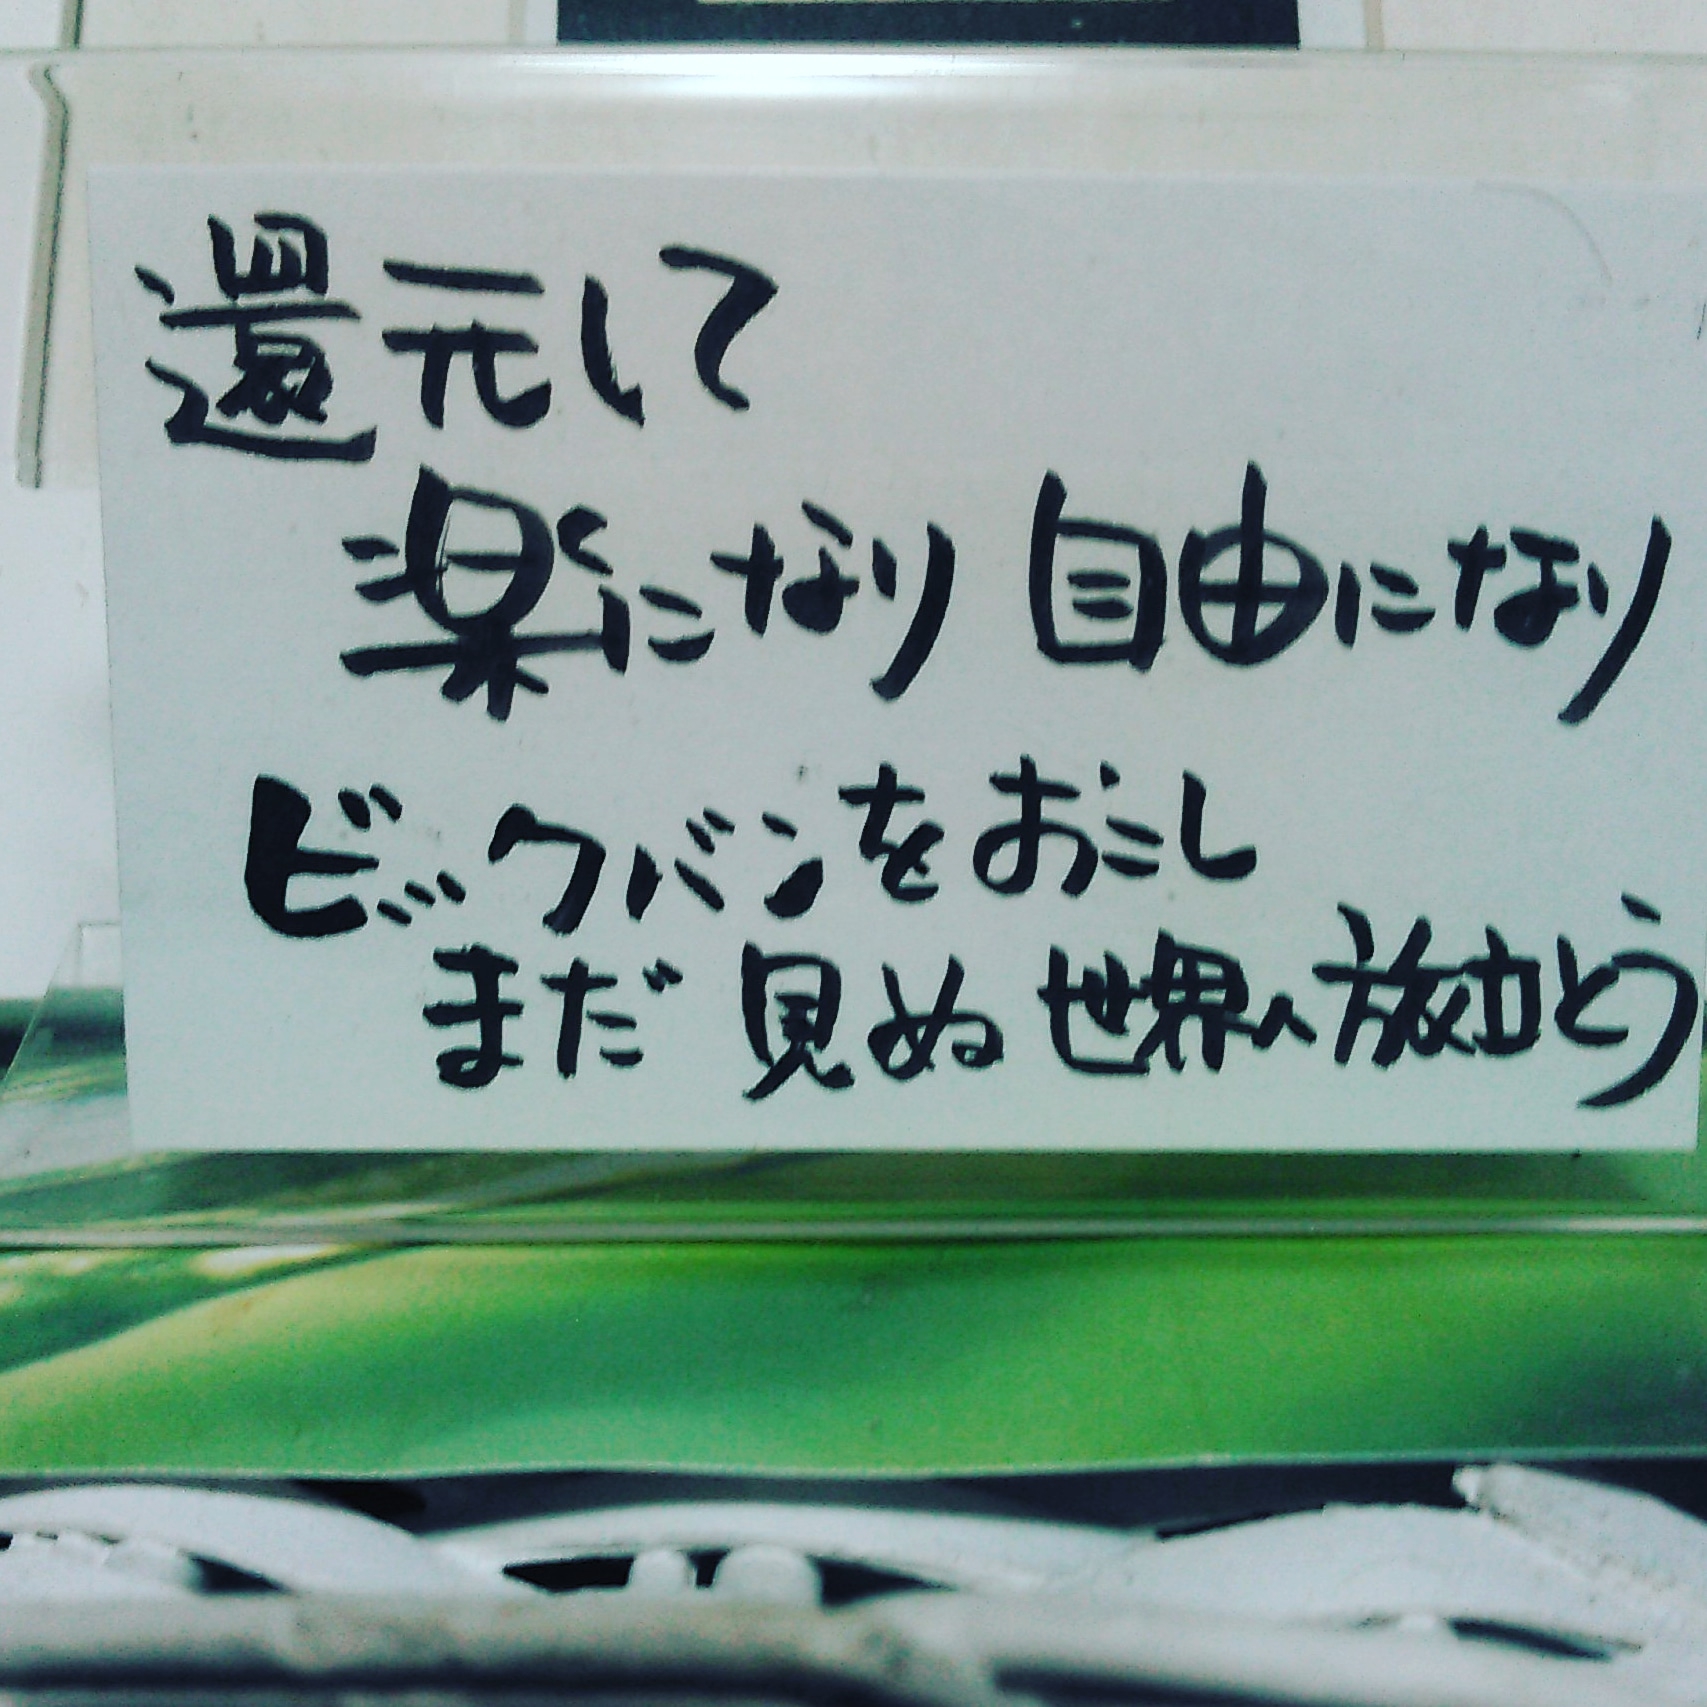 還元して
楽になり 自由になり
ビックバンをおこし
まだ 見ぬ 世界へ 旅立とう